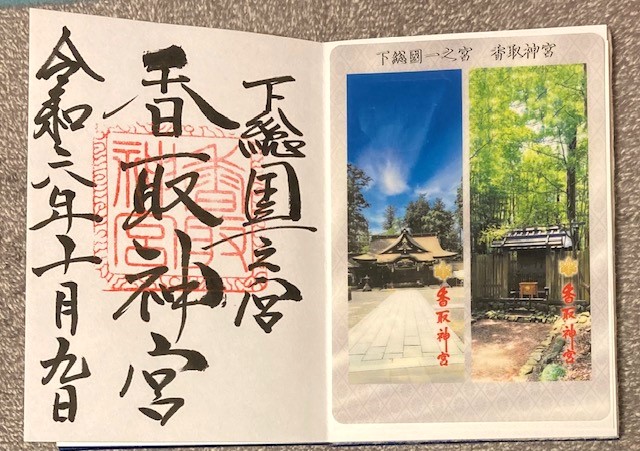 下総国一之宮
香取神宮
香取神宮
令和六年十月九日
下総國一之宮 香取神宮
香取神宮
香取神宮